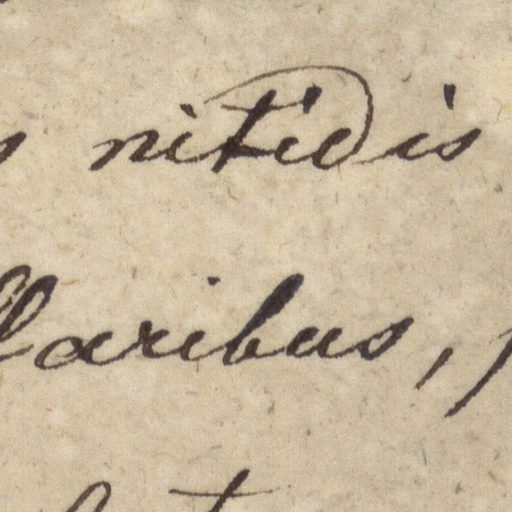 nitidis
llaribus,